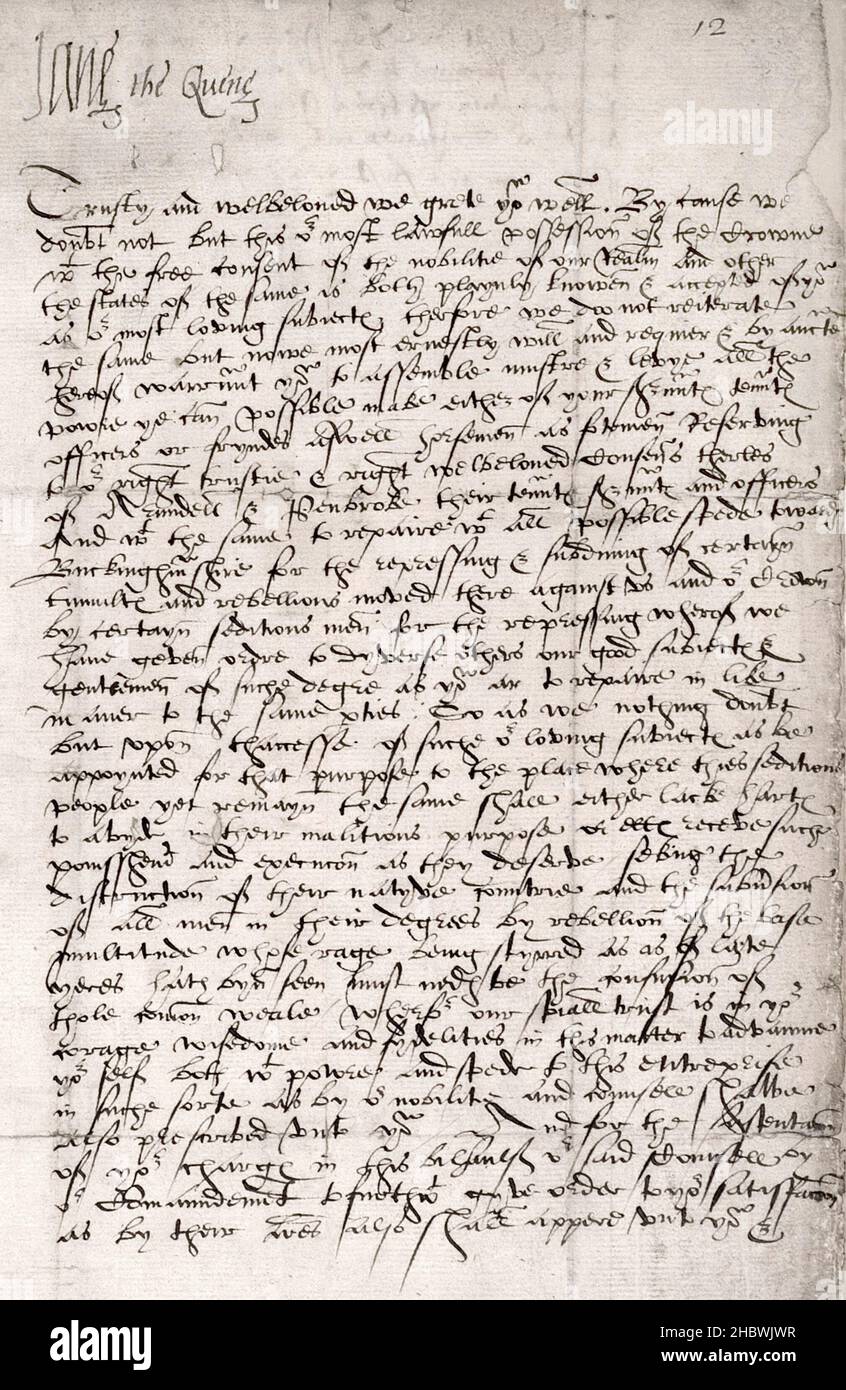 12
Jane the Quene
Trusty and welbeloved we grete yow well. By cause we
doubt not but this or most lawfull possession of the Crowne
wt the free consent of the nobilitie of our realm and other
the states of the same is both playnly knowen & accepted of you
as or most loving subiectes therfore we do not reiterate
the same but nowe most ernestly will and require & by auctte
herof warraunt you to assemble mustre & levye all the
powre ye can possible make either of your servuntes tenntes
officers or fryndes aswell horsemen as fotemen Reserving
to or right trustie & right welbeloved Consens therles
of Arundell & Penbroke their tenntes servuntes and officers
And wt the same to repaire wt all possible spede towardes
Buckinghmshire for the repressing & subduing of certayn
tumultes and rebellions moved there against us and or Crown
by certayn seditious men for the repressing wherof we
have geven ordre to dyverse others our good subiectes &
gentlemen of suche degree as you ar to repaire in like
maner to the same pties. So as we nothing doubt
but upon thaccesse of suche or loving subiectes as be
appoynted for that purpose to the place where thies seditious
people yet remayn the same shall either lacke hartes
to abyde in their malitious purpose or elles receve suche
ponisshent and execucon as they deserve seking the
distruction of their natyve countrie and the subversion
of all men in their degrees by rebellion of the base
multitude whose rage being styrred as of late
yeres hath byn seen must nedes be the confusion of
thole comon weale wherfor our spiall trust is in yor
corage wisedome and fydelities in this matter to advaunce
yor self both wt powre and spede to this entreprise
in suche sorte as by or nobilite and counsell shalbe
also prescribed unto you And for the sustentacion
of yor charges in this bihaulf or said Counsell by
or Comaundement do furthwt gyve order to yor satisfaction
as by their lres also shall appere unto you &
alamy
Image ID: 2HBWJWR
www.alamy.com